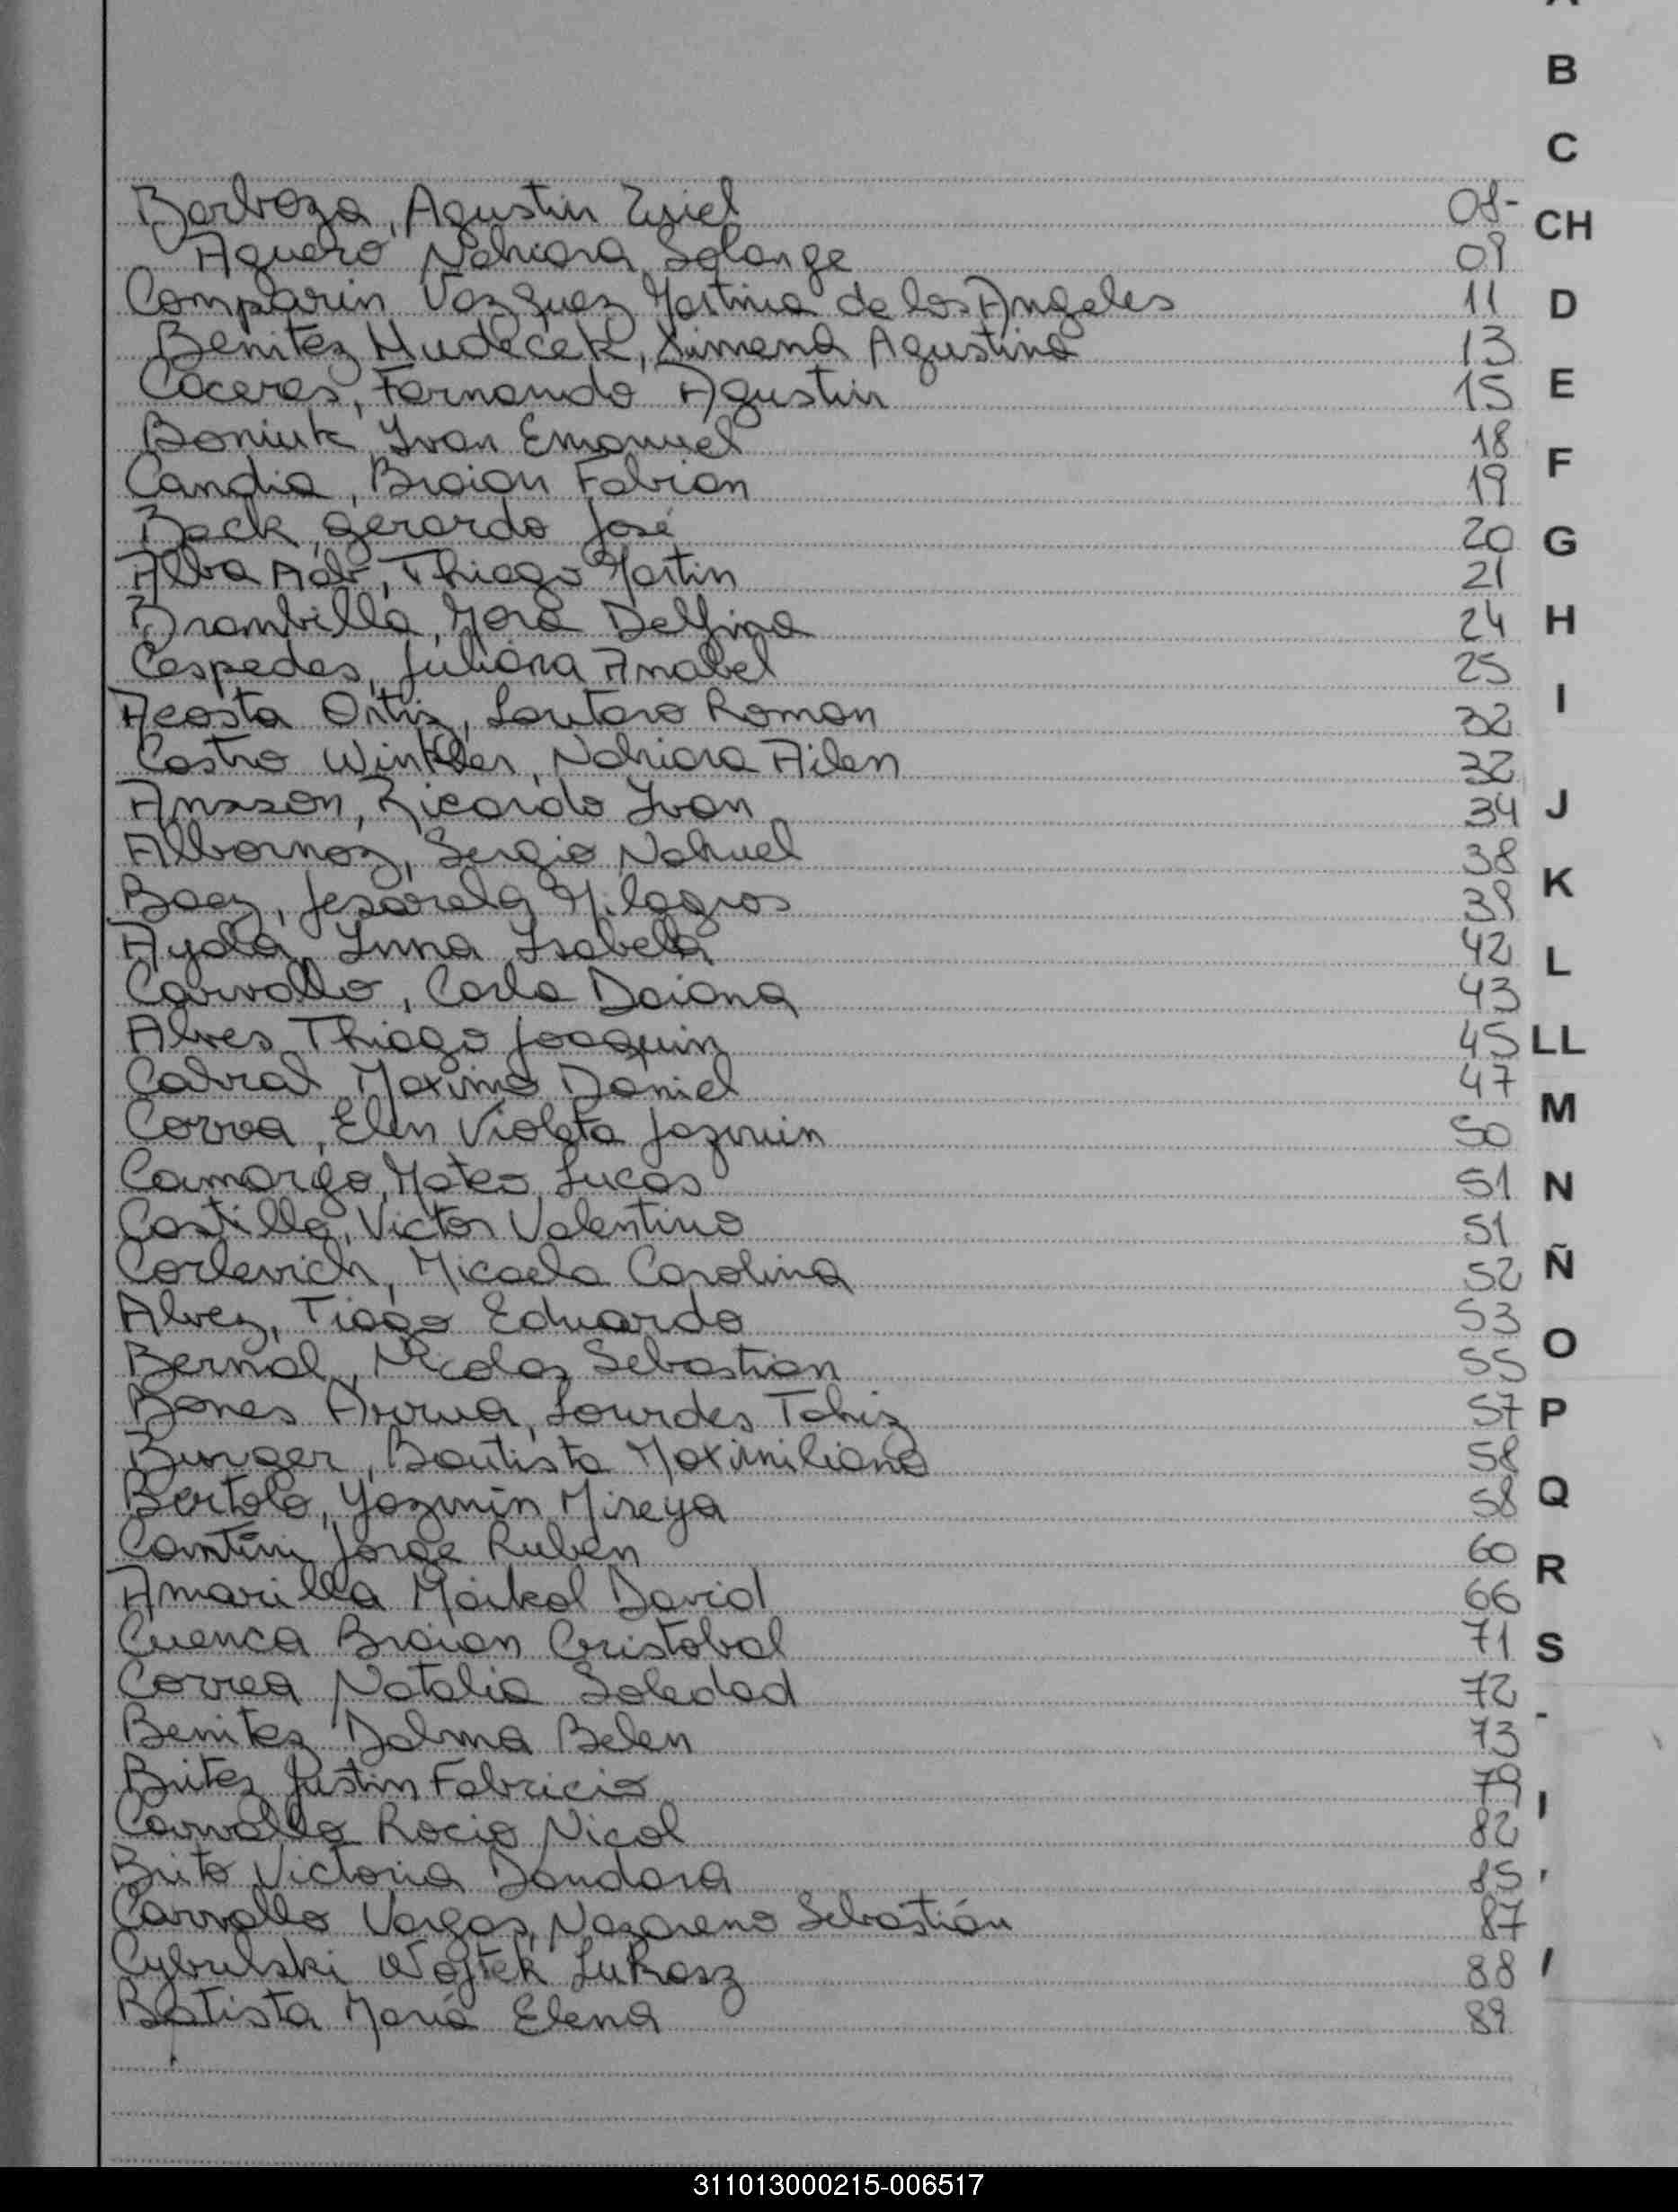 B
C
CH
D
E
F
G
H
I
J
K
L
LL
M
N
Ñ
O
P
Q
R
S
Barboza, Agustin Uriel 08-
Aguero Nahiara Solange 09
Comparin Vazquez Martina de los Angeles 11
Benitez Hudecek, Ximena Agustina 13
Caceres, Fernando Agustin 15
Boniuk, Ivan Emanuel 18
Candia, Braian Fabian 19
Beck, gerardo José 20
Alba Adr, Thiago Martin 21
Brambilla, Mora Delfina 24
Cespedes, Juliana Anabel 25
Acosta Ortiz, Lautaro Roman 32
Castro Winkler, Nahiara Ailen 32
Ansson, Ricardo Ivan 34
Albornoz, Sergio Nahuel 38
Baez, Milagros 39
Ayala, Inna Isabela 42
Carvallo, Carla Daiana 43
Alves Thiago Joaquin 45
Cabral Maximo Daniel 47
Correa, Elen Violeta Jazmin 50
Camargo, Mateo, Lucas 51
Castilla, Victor Valentino 51
Corlevich, Micaela Carolina 52
Alvez, Tiago Eduardo 53
Bernal, Nicolas Sebastian 55
Bones Arrua, Lourdes Tahiz 57
Burger, Bautista Maximiliano 58
Bertolo, Yazmin Mireya 58
Cantini Jorge Ruben 60
Amarilla Maikol David 66
Cuenca Braian Cristobal 71
Correa Natalia Soledad 72
Benitez Dalma Belen 73
Britez Justin Fabricio 79
Carvallo Rocio Nicol 82
Brito Victoria Dandara 85
Carvallo Vargas, Nazareno Sebastián 87
Cybulski Wojtek Lukasz 88
Batista Maria Elena 89
311013000215-006517